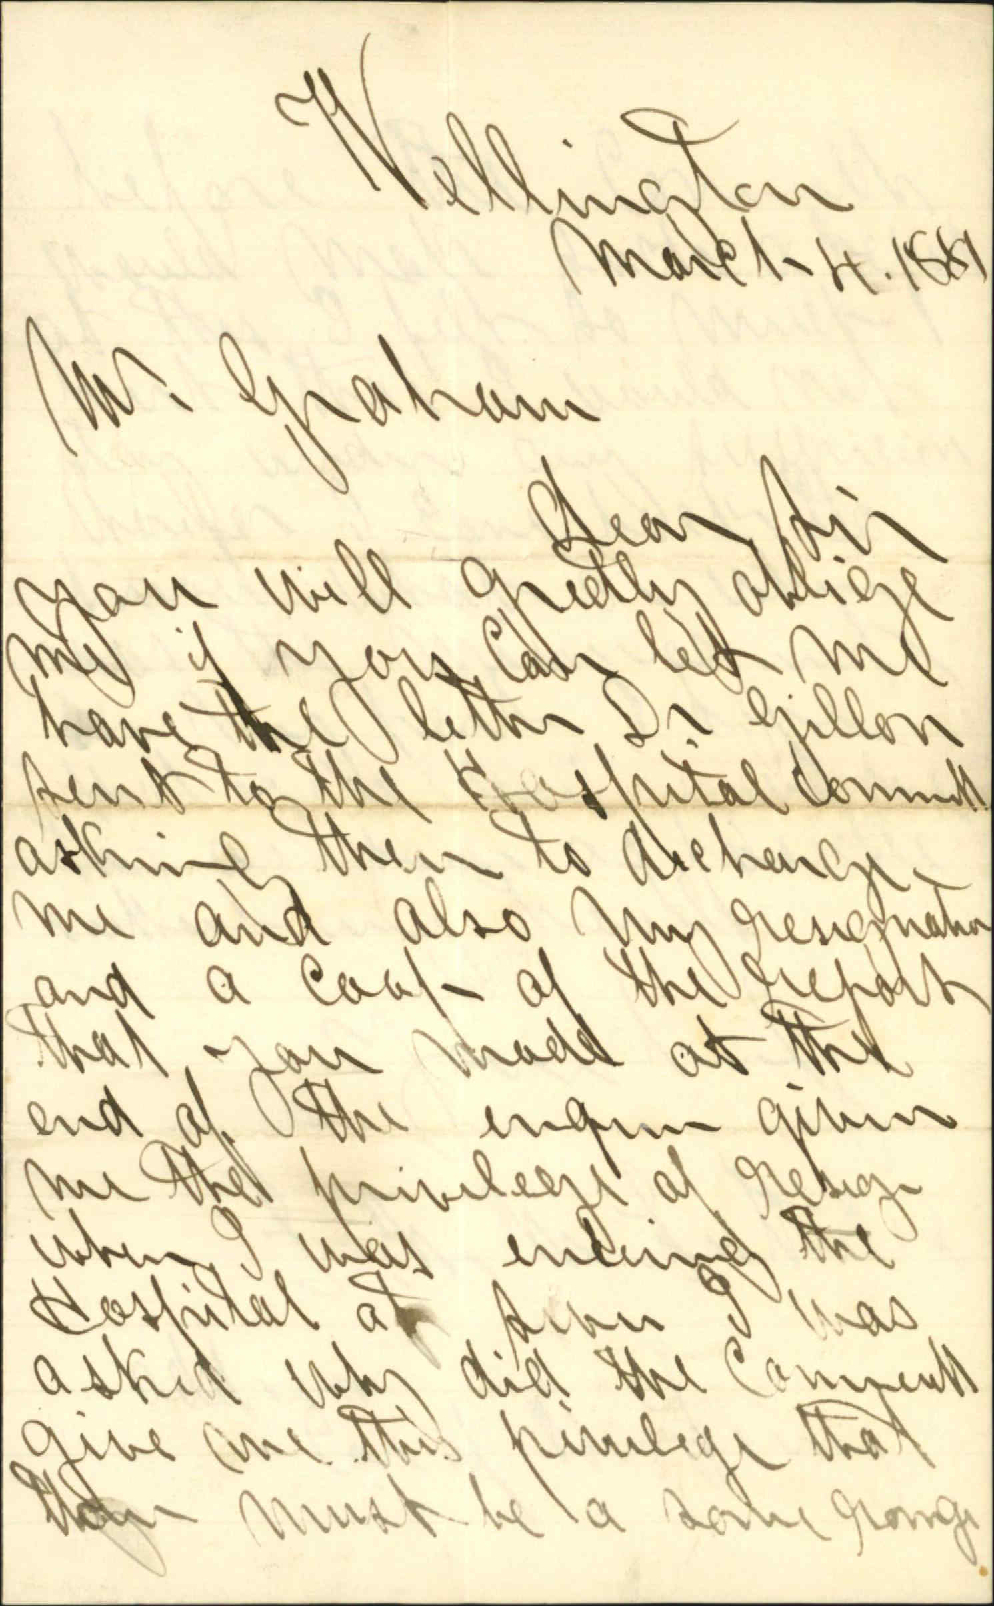 Wellington
March 4. 1881
Mr. Graham
Dear Sir
you will greatly obliege
me if you can let me
have the letter Dr Gillon
sent to the Hospital Committ
asking them to discharge
me and also my resignation
and a coop of the report
that you made at the
end of the given
me the privileege of resign
when I was the
Hospital at I was
asked why did the Committ
give me this privilege that
must be a some